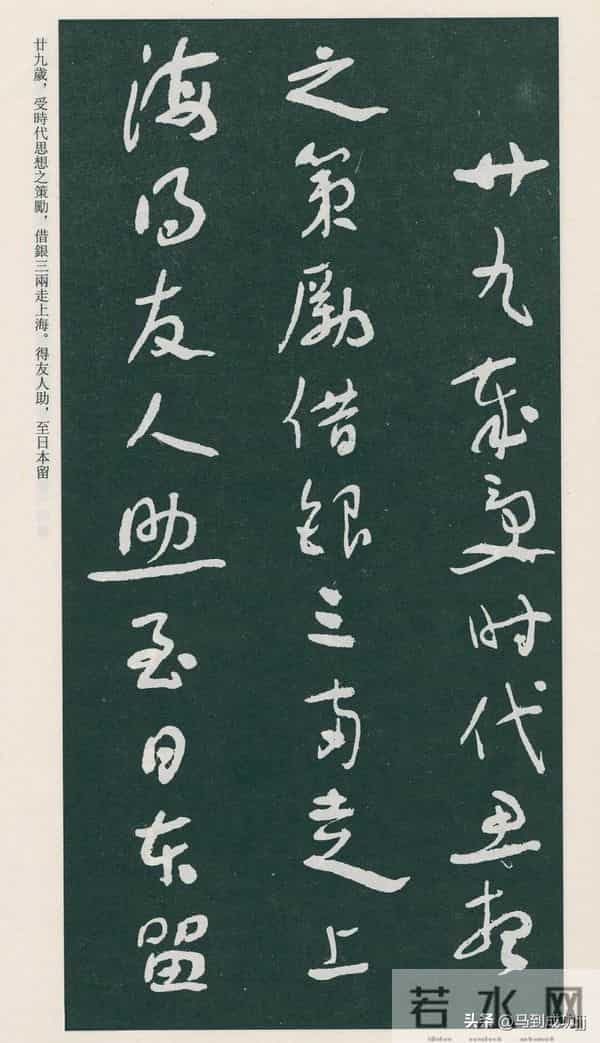 廿九歲受時代思想
之策勵借銀三兩走上
海得友人助至日本留
廿九歲，受時代思想之策勵，借銀三兩走上海。得友人助，至日本留
若水网
头条 @马到成功jjj